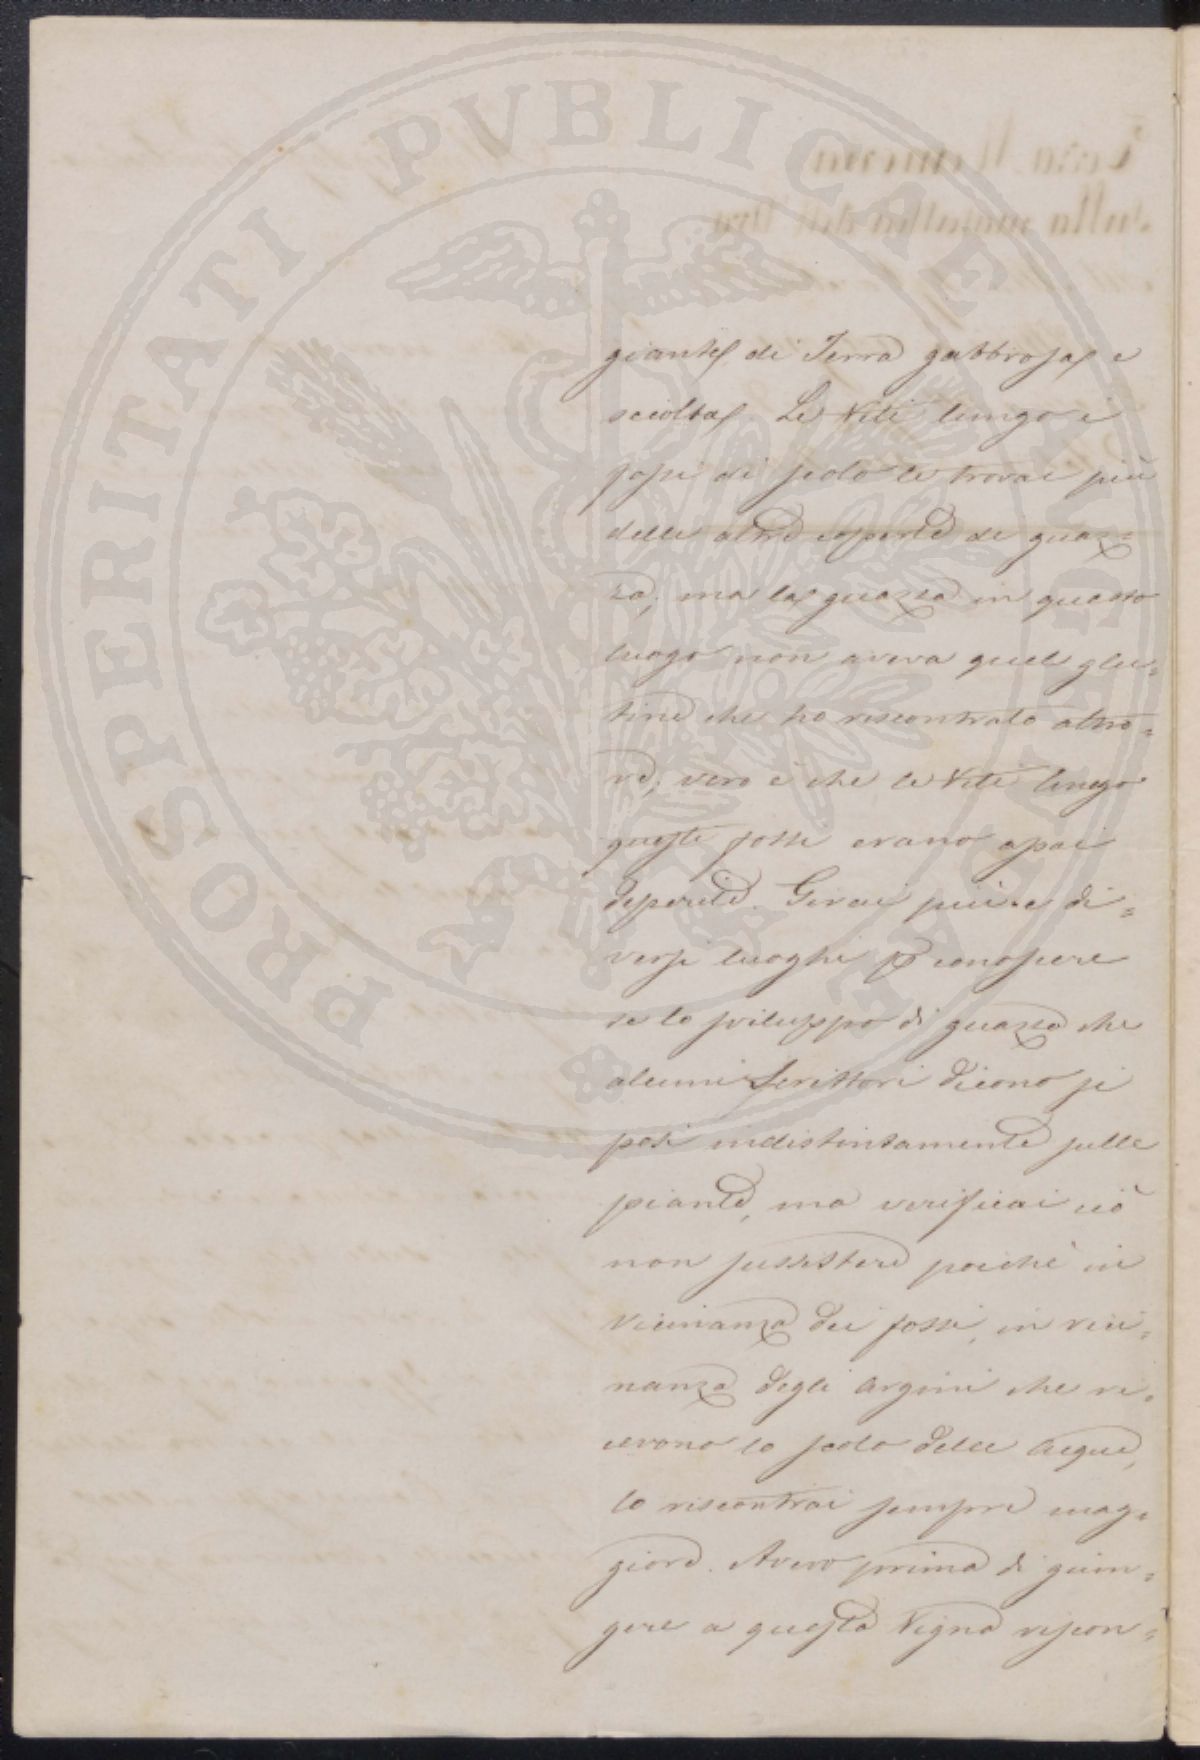 PROSPERITATI PVBLICAE AVGENDAE
giante di Terra gabbrosa e
sciolta. Le Viti lungo i
fossi di scolo le trovai più
delle altre coperte de guaz=
za; ma la guazza in questo
luogo non aveva quel glu=
tine che ho riscontrato altro=
ve; vero è che le Viti lungo
questi fossi erano assai
deperite. Girai più e di=
versi luoghi p conoscere
se lo sviluppo di guazza che
alcuni Scrittori dicono si
posi indistintamente sulle
piante, ma verificai ciò
non sussistere poichè in
vicinanza dei fossi, in vici=
nanza degli argini che ri=
cevono lo scolo delle acque,
lo riscontrai sempre mag=
giore. Avevo prima di giun=
gere a questa Vigna riscon=